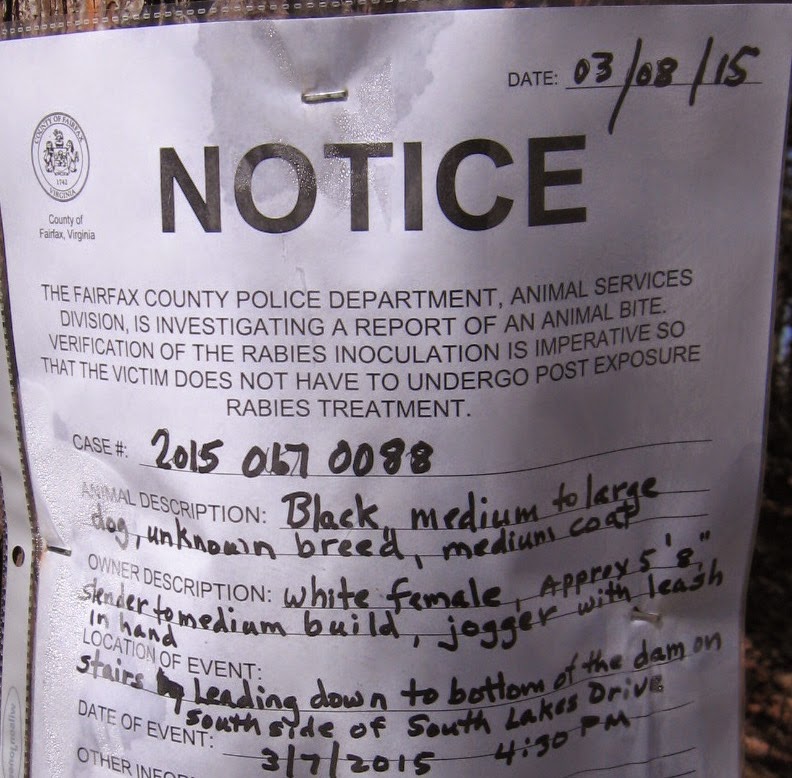 DATE: 03/08/15
COUNTY OF FAIRFAX
1742
VIRGINIA
County of
Fairfax, Virginia
NOTICE
THE FAIRFAX COUNTY POLICE DEPARTMENT, ANIMAL SERVICES
DIVISION, IS INVESTIGATING A REPORT OF AN ANIMAL BITE.
VERIFICATION OF THE RABIES INOCULATION IS IMPERATIVE SO
THAT THE VICTIM DOES NOT HAVE TO UNDERGO POST EXPOSURE
RABIES TREATMENT.
CASE #: 2015 067 0088
ANIMAL DESCRIPTION: Black, medium to large
dog, unknown breed, medium coat
OWNER DESCRIPTION: white female, Approx 5'8"
slender to medium build, jogger with leash
in hand
LOCATION OF EVENT:
stairs leading down to bottom of the dam on
south side of South Lakes Drive
DATE OF EVENT: 3/7/2015 4:30 PM